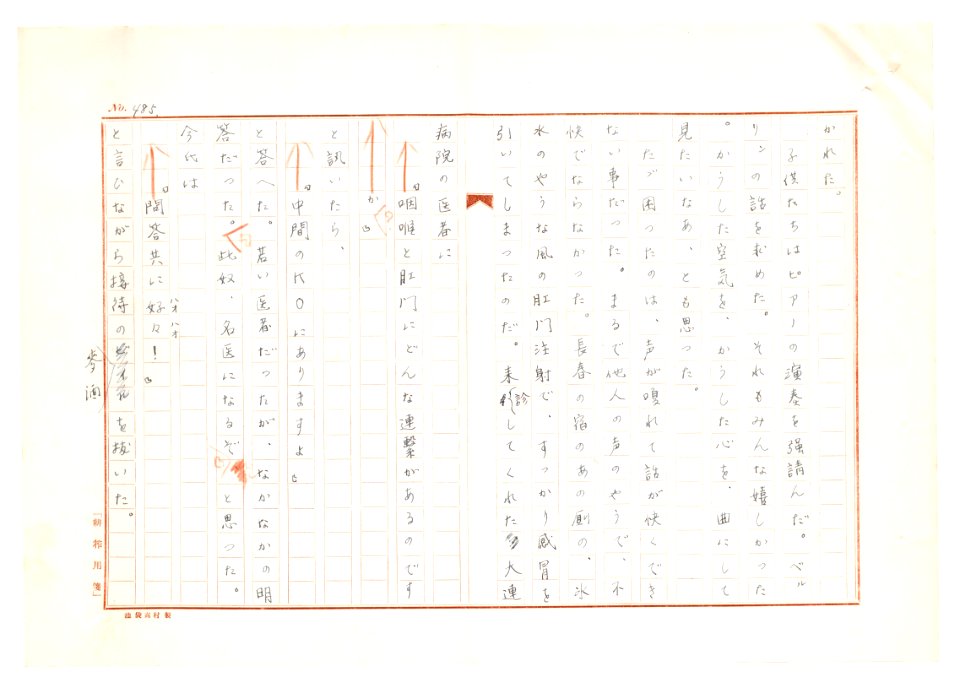 No. 485.
かれた。
子供たちはピアノの演奏を強請んだ。ベル
リンの話を求めた。それもみんな嬉しかった
。かうした空気を、かうした心を、曲にして
見たいなあ、とも思つた。
たゞ困つたのは、声が嗄れて話が快くでき
ない事だつた。まるで他人の声のやうで、不
快でならなかつた。長春の宿のあの厠の、氷
水のやうな風の肛門注射で、すつかり感冒を
引いてしまつたのだ。来診してくれた大連
病院の医者に
『咽喉と肛門にどんな連繋があるのです
か』
と訊いたら、
『中間のKOにありますよ』
と答へた。若い医者だつたが、なかなかの明
答だつた。此奴、名医になるぞ と思つた。
今代は
『問答共に好々!』
ハオハオ
と言ひながら接待の麥酒を抜いた。
「朝 用箋」